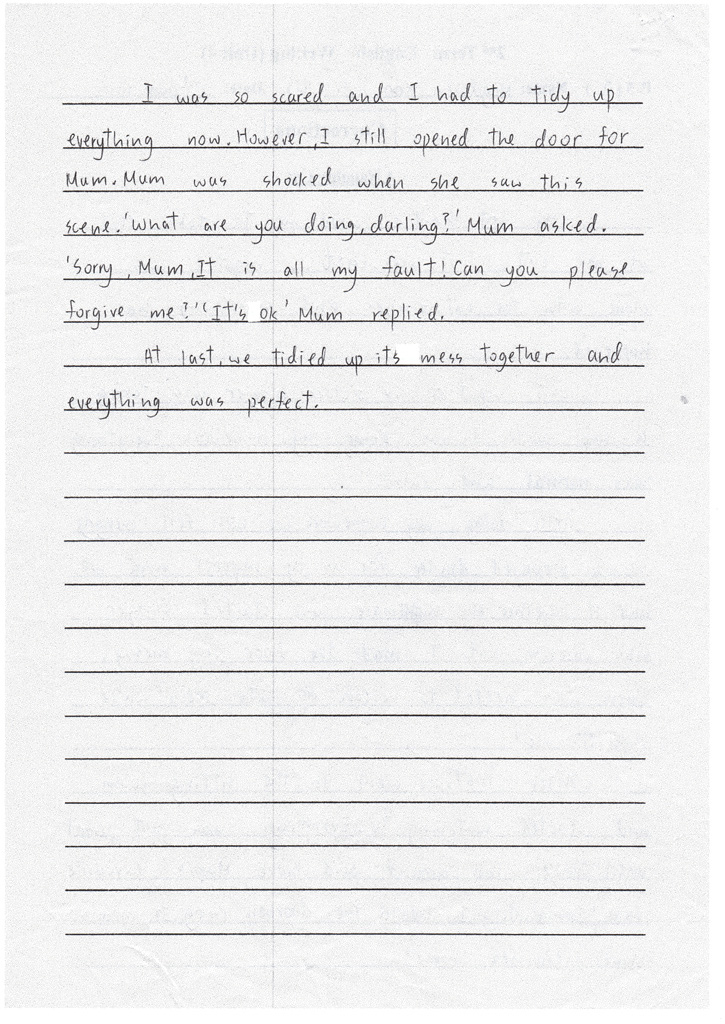 I was so scared and I had to tidy up
everything now. However, I still opened the door for
Mum. Mum was shocked when she saw this
scene. 'What are you doing, darling?' Mum asked.
'Sorry, Mum, It is all my fault! Can you please
forgive me?' 'It's ok' Mum replied.
At last, we tidied up its mess together and
everything was perfect.